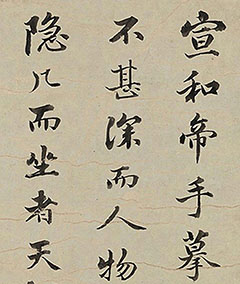 宣和帝手摹
不甚深而人物
隐几而坐者天